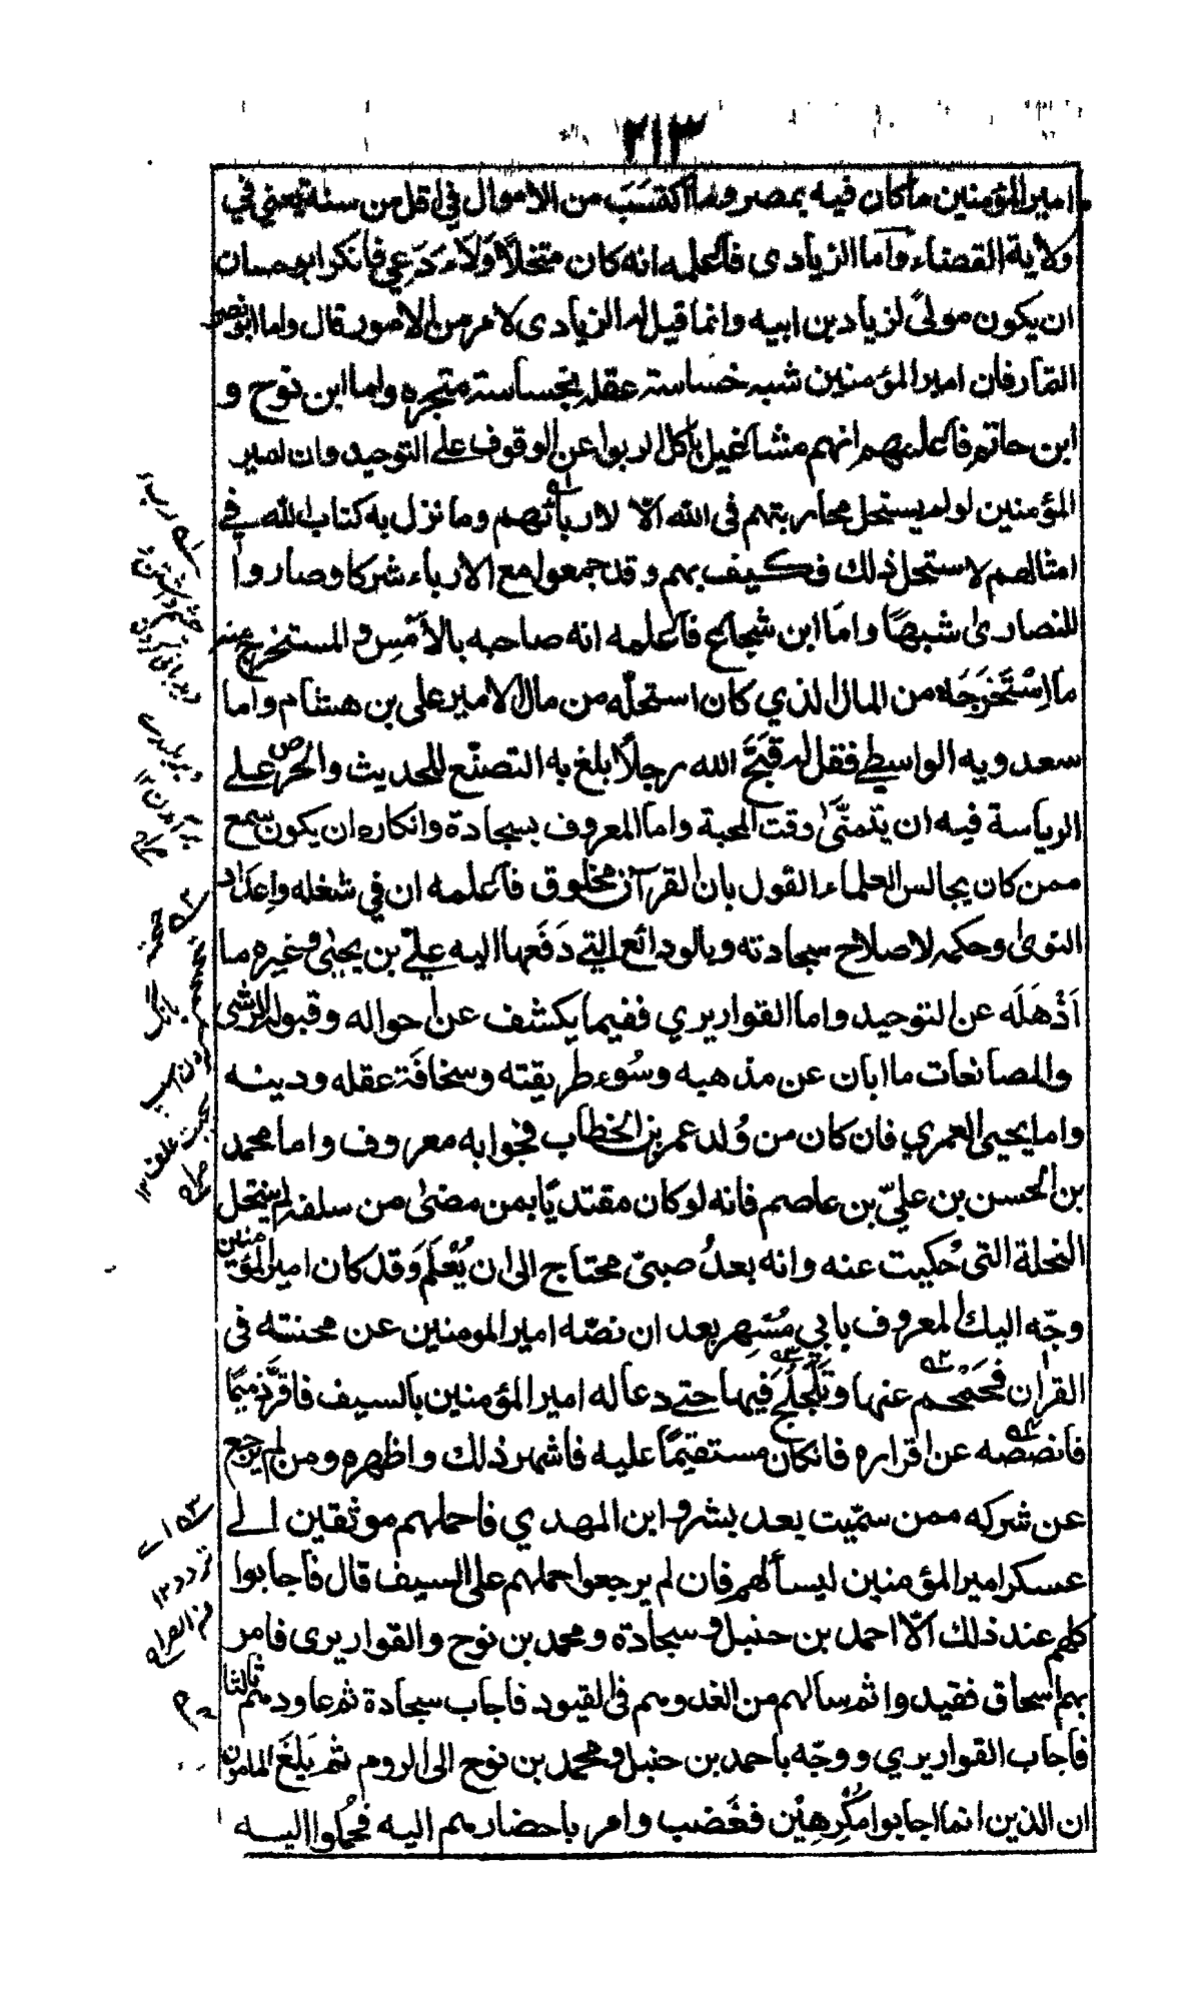 ٢١٣
امير المؤمنين ما كان فيه بمصر وما اكتسَبَ من الاموال في اقل من سنة يعني في
ولاية القضاء واما الزيادى فاعلمه انه كان منتحلًا وَلَاء دَعِي فانكر ابو حسان
ان يكون مولىً لزياد بن ابيه وانما قيل له الزيادى لامر من الامور قال واما ابو نصر
التمار فان امير المؤمنين شبه خساسة عقله بخساسة متجره واما ابن نوح و
ابن حاتم فاعلمهم انهم مشاغيل باكل الربوا عن الوقوف على التوحيد وان امير
المؤمنين لو لم يستحل محاربتهم فى الله الّا لاربائهم وما نزل به كتاب الله في
امثالهم لاستحل ذلك فكيف بهم وقد جمعوا مع الارباء شركا وصاروا
للنصارىٰ شبهًا واما ابن شجاع فاعلمه انه صاحبه بالأمْسِ و المستخرج منه
ما اِسْتَخْرَجَه من المال الذي كان استحلّه من مال الامير على بن هشام واما
سعدويه الواسطي فقل له قَبَّحَ الله رجلًا بلغ به التصنّع للحديث والحرص على
الرياسة فيه ان يتمنّىٰ وقت المحبة واما المعروف بسجادة وانكاره ان يكون سمع
ممن كان يجالس العلماء القول بان القرآن مخلوق فاعلمه ان في شغله واِعدَاد
النوىٰ وحكمه لاصلاح سجادته وبالودائع التي دَفَعها اليه علىّ بن يحيىٰ وغيره ما
اَذْهَلَه عن التوحيد واما القواريري ففيما يكشف عن احواله وقبوله الرشى
والمصانعات ما ابان عن مذهبه وسُوء طريقته وسخافَة عقله ودينه
واما يحيى العمري فان كان من وُلد عمر بن الخطاب فجوابه معروف واما محمد
بن الحسن بن عليّ بن عاصم فانه لو كان مقتديًا بمن مضىٰ من سلفه لم ينتحل
النحلة التي حُكيت عنه وانه بعدُ صبىّ محتاج الى ان يُعْلَم وَقد كان امير المؤمنين
وجّه اليك المعروف بابي مُسْهِر بعد ان نصّه امير المومنين عن محنته فى
القراٰن فجَمْجم عنها وتَلَجْلَجَ فيها حتى دعا له امير المؤمنين بالسيف فاقرَّ ذميمًا
فانصصه عن اقراره فانكان مستقيمًا عليه فاشهر ذلك واظهره ومن لم يرجع
عن شركه ممن سمّيت بعد بشر و ابن المهدي فاحملهم موثقين الى
عسكر امير المؤمنين ليسألهم فان لم يرجعوا حملهم على السيف قال فاجابوا
كلهم عند ذلك الّا احمد بن حنبل و سجادة ومحمد بن نوح والقواريرى فامر
بهم اسحاق فقيدوا ثم سالهم من الغد وهم في القيود فاجاب سجادة ثم عاودهم ثالثا
فاجاب القواريري و وجّه باحمد بن حنبل ومحمد بن نوح الى الروم ثم بَلَغَ المامون
ان الذين انما اجابوا مُكْرهين فغَضب وامر باحضارهم اليه فحُملوا اليه